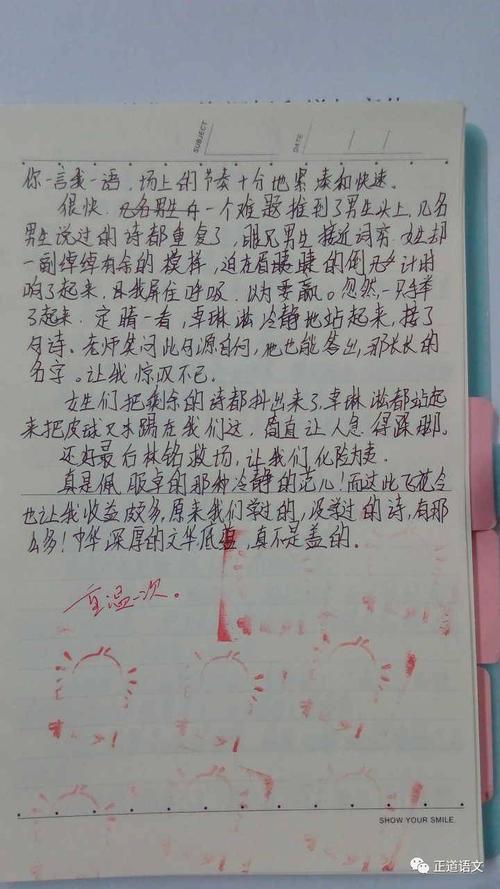 SUBJECT
DATE
你一言我一语，场上的节奏十分地紧凑和快速。
很快，几名男生 一个难题推到了男生头上，几名
男生说过的诗都重复了，眼见男生接近词穷，女生却
一副绰绰有余的模样，迫在眉睫的倒 计时
响了起来，且我屏住呼吸，以为要赢。忽然，一只手举
了起来，定睛一看，卓琳淞冷静地站起来，接了
句诗。老师笑问此句源自何，他也能答出，那长长的
名字。让我惊叹不已。
女生们把剩余的诗都抖出来了，卓琳淞都站起
来把皮球又木踢在我们这，简直让人急得跺脚。
还好最后林铭救场，让我们化险为夷。
真是佩服卓的那种冷静的范儿！而过此飞花令
也让我收益 多，原来我们学过的，没学过的诗，有那
么多！中华深厚的文华底蕴，真不是盖的。
重温一次。
SHOW YOUR SMILE
正道语文